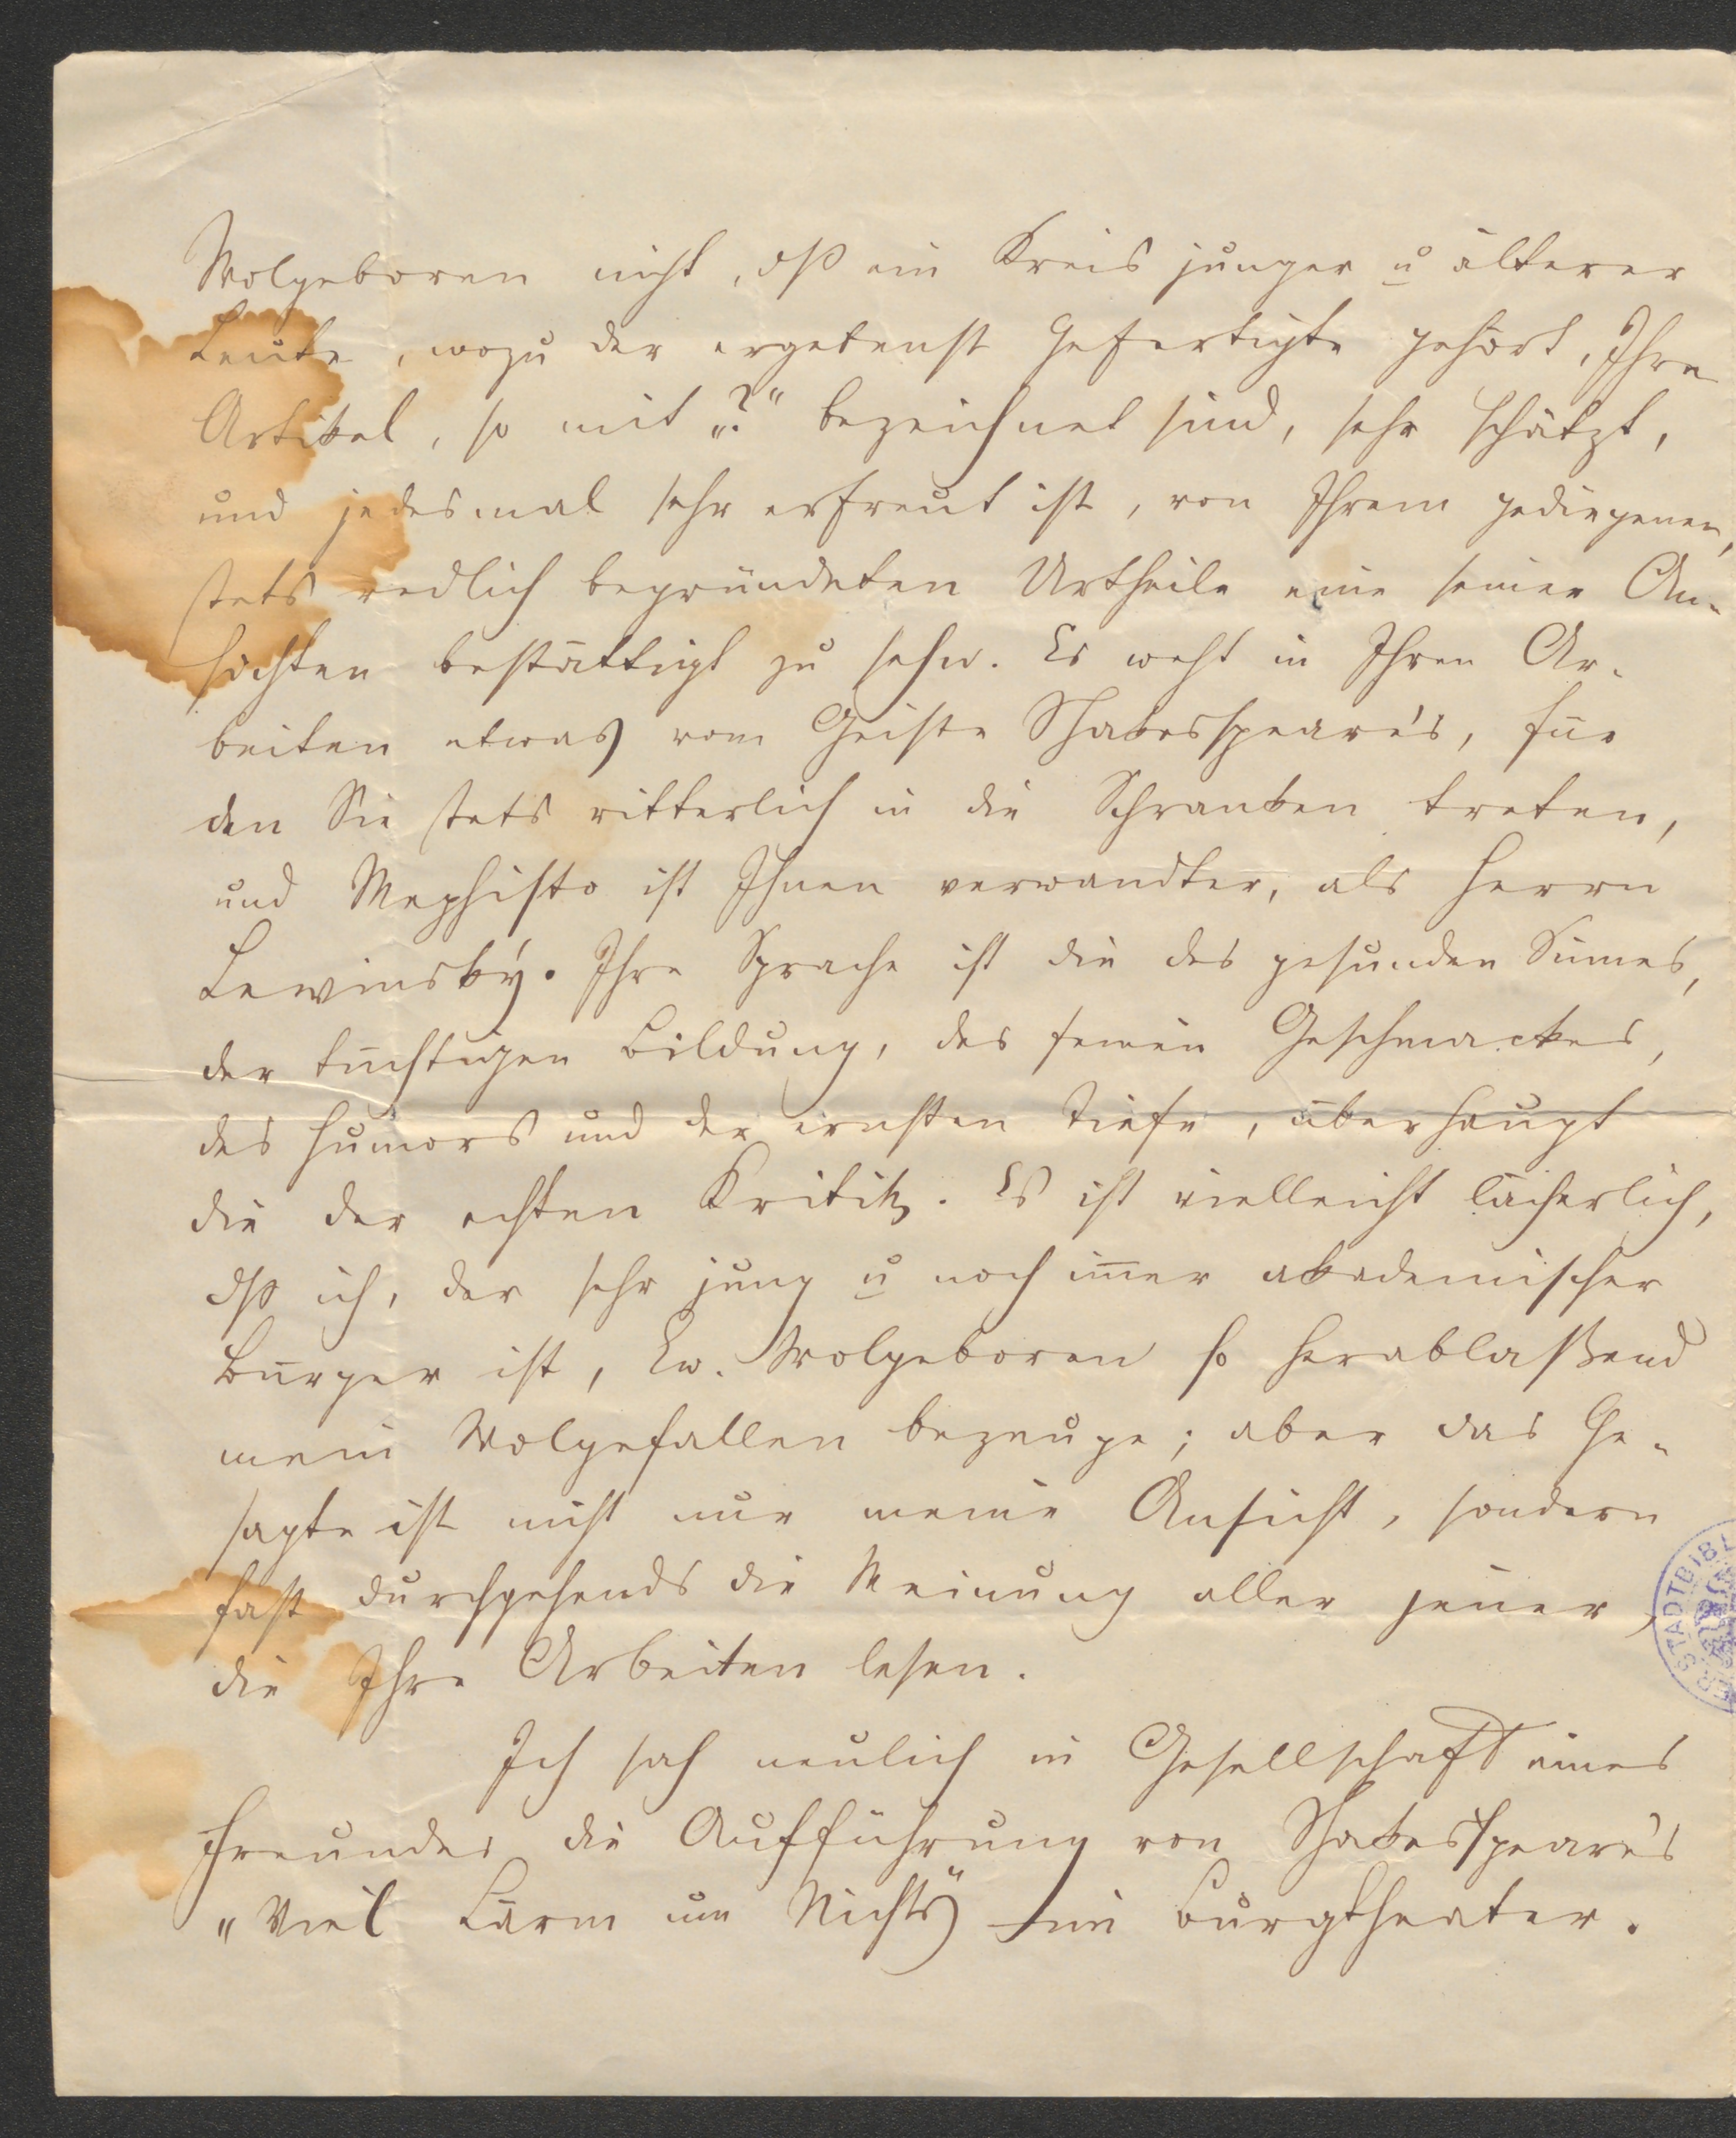 Wolgeboren nicht, dß ein Kreis junger u älterer
Leute, wozu der ergebenst Gefertigte gehört, Ihre
Artikel, so mit „?“ bezeichnet sind, sehr schätzt,
und jedesmal sehr erfreut ist, von Ihrem gediegenen,
stets redlich begründeten Urtheile eine seiner An-
sichten bestättigt zu sehn. Es weht in Ihren Ar-
beiten etwas vom Geiste Shakesspeare's, für
den Sie stets ritterlich in die Schranken treten,
und Mephisto ist Ihnen verwandter, als Herrn
Lewinsky. Ihre Sprache ist die des gesunden Sinnes,
der tüchtigen Bildung, des feinen Geschmackes,
des Humors und der ernsten Tiefe, überhaupt
die der echten Kritik. Es ist vielleicht lächerlich,
dß ich, der sehr jung u noch im̅er akademischer
Bürger ist, Ew. Wolgeboren so herablaßend
mein Wolgefallen bezeuge; aber das Ge-
sagte ist nicht nur meine Ansicht, sondern
fast durchgehends die Meinung aller jener,
die Ihre Arbeiten lesen.
STADTBIBL
Ich sah neulich in Gesellschaft eines
Freundes die Aufführung von Shakesspeare's
„Viel Lärm um Nichts“ im Burgtheater.